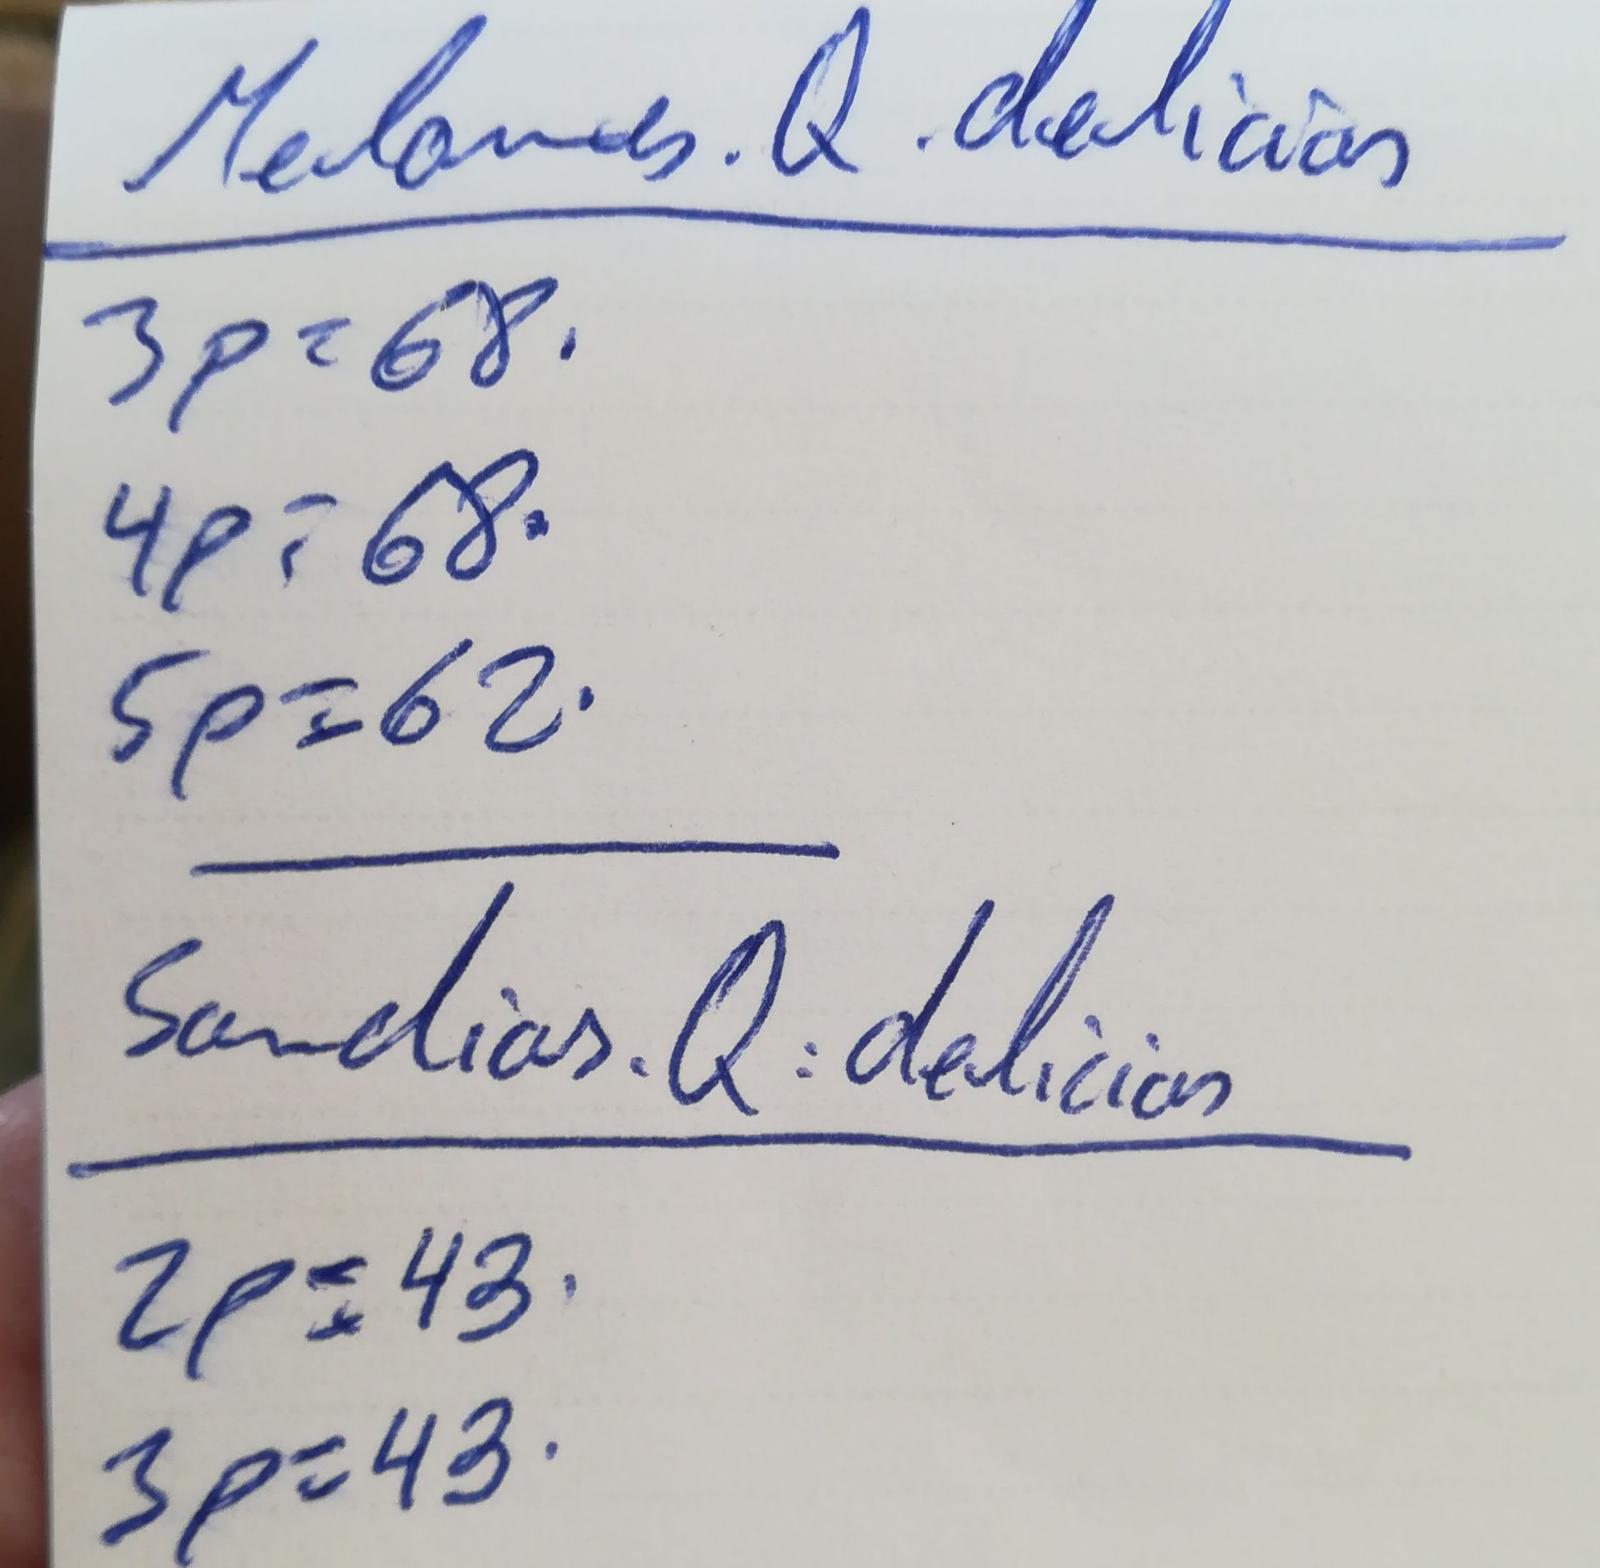 Melones. Q. delicias
3p=68.
4p=68.
5p=62.
Sandias. Q: delicias
2p=43.
3p=43.